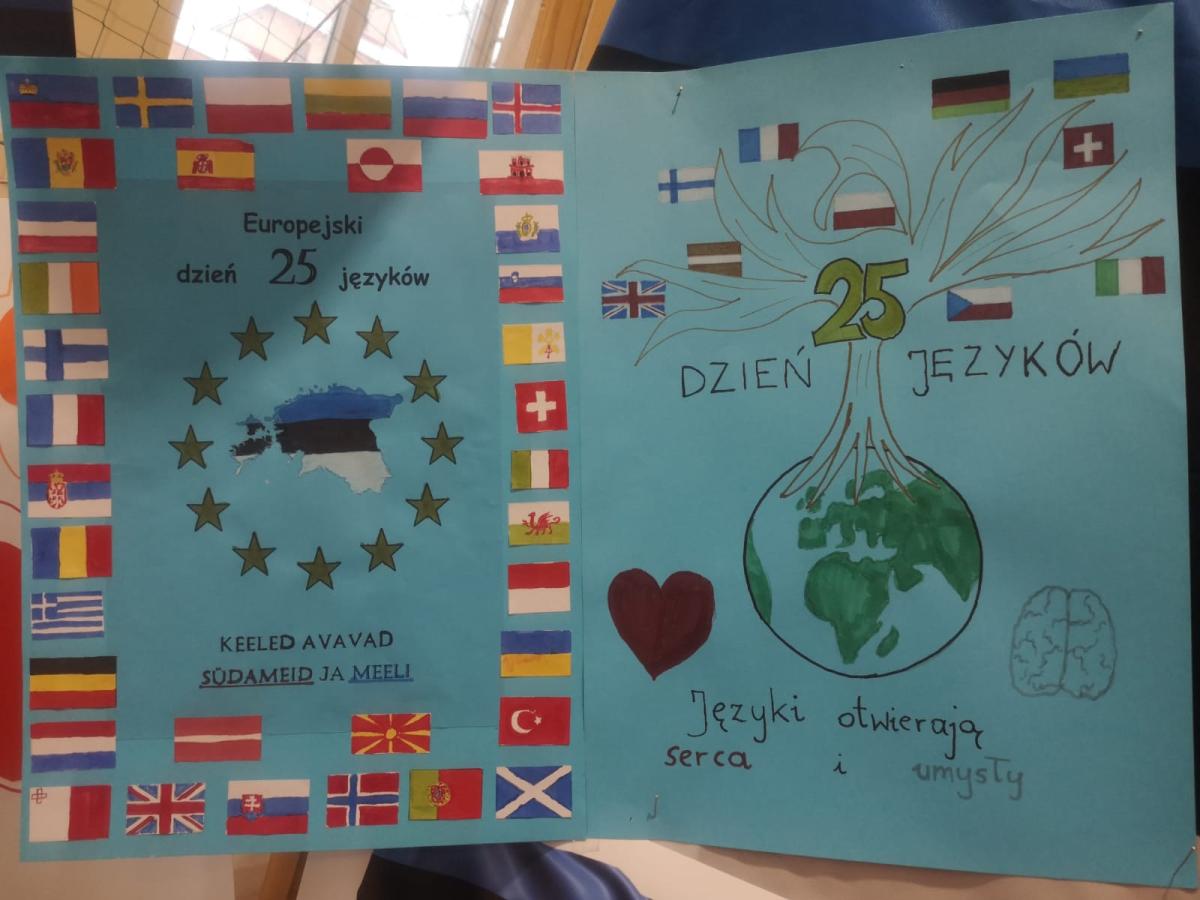 Europejski
dzień 25 języków
KEELED AVAVAD
SÜDAMEID JA MEELI
25
DZIEŃ JĘZYKÓW
Języki otwierają
serca i umysły